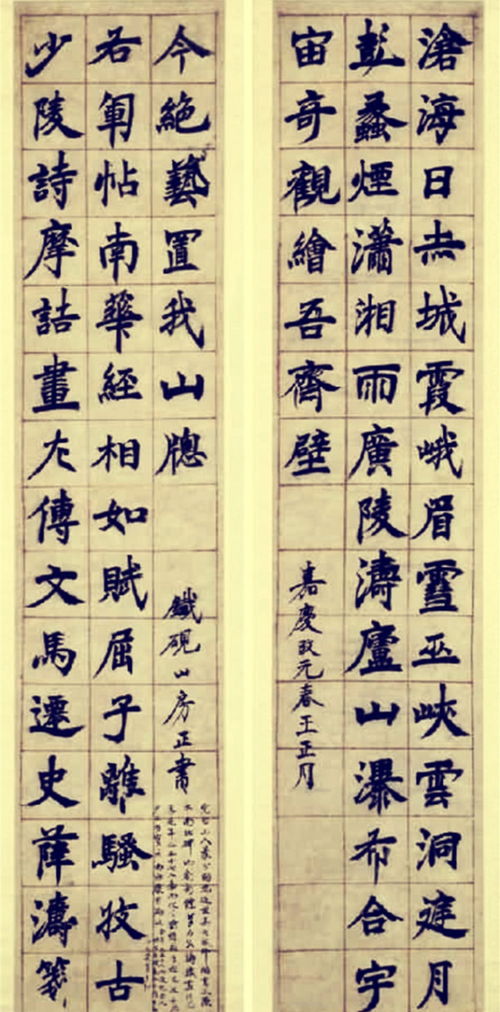 滄海日赤城霞峨眉雪巫峽雲洞庭月
彭蠡煙瀟湘雨廣陵濤廬山瀑布合宇
宙奇觀繪吾齊壁
嘉慶改元春王正月
少陵詩摩詰畫左傳文馬遷史薛濤箋
右軍帖南華經相如賦屈子離騷收古
今絕藝置我山牕
鐵硯山房正書